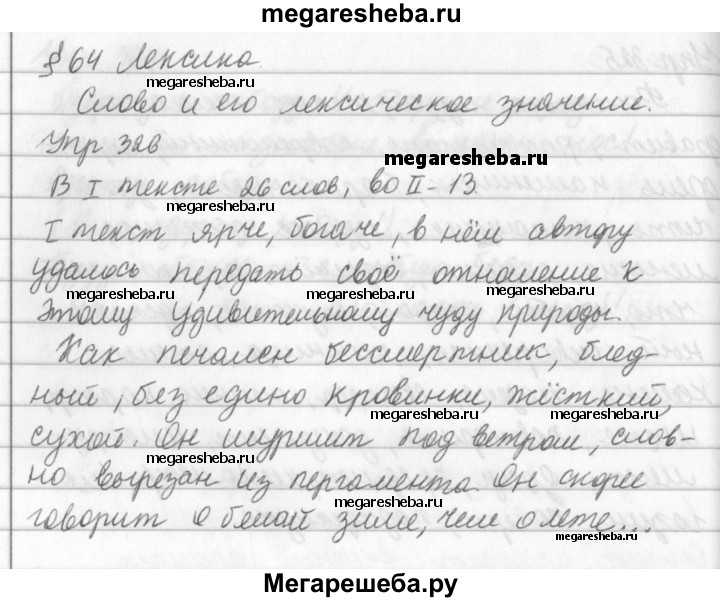 megaresheba.ru
§ 64 Лексика.
megaresheba.ru
Слово и его лексическое значение.
Упр 326
megaresheba.ru
В I тексте 26 слов, во II – 13.
megaresheba.ru
I текст ярче, богаче, в нём автору
удалось передать своё отношение к
megaresheba.ru megaresheba.ru megaresheba.ru
этому удивительному чуду природы.
Как печален бессмертник, блед-
ный, без едино кровинки, жёсткий,
megaresheba.ru megaresheba.ru
сухой. Он шуршит под ветром, слов-
megaresheba.ru
но вырезан из пергамента. Он скорее
megaresheba.ru
говорит о белой зиме, чем о лете...
megaresheba.ru
Мегарешеба.ру